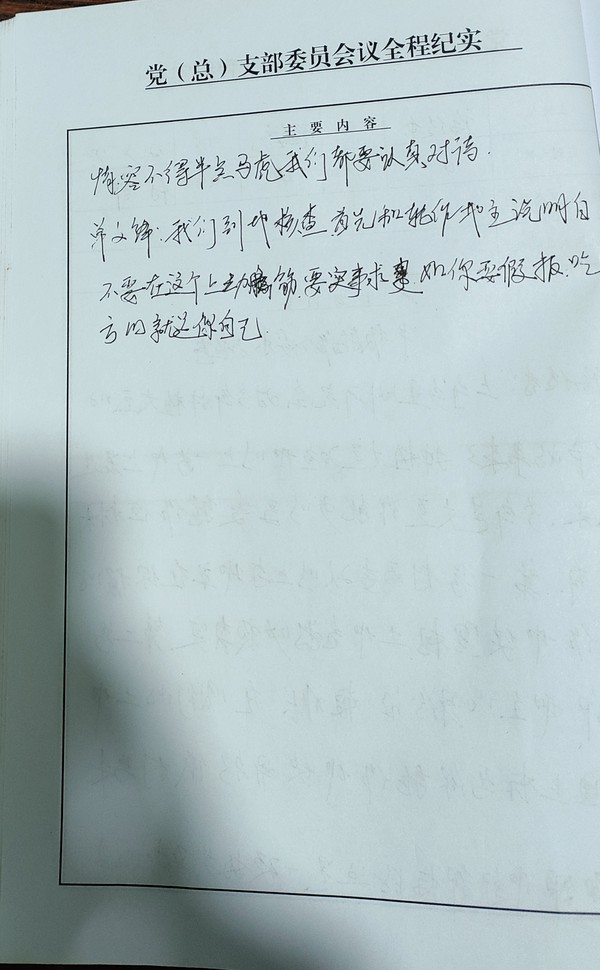 党（总）支部委员会议全程纪实
主要内容
情容不得半点马虎，我们都要认真对待.
单文锋：我们到地核查，首先和耕作地主说明白
不要在这个上动脑筋，要实事求是，如你要假报，吃
亏的就是你自己.